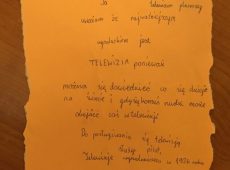 Ja
uważam że najważniejszym
wynalazkiem jest
TELEWIZJA ponieważ
można się dowiedzieć co się dzieje
na świecie i gdy nuda może
obejrzeć coś w telewizji
Do posługiwania się telewizją
służy pilot.
Telewizję wynaleziono w 1926 roku